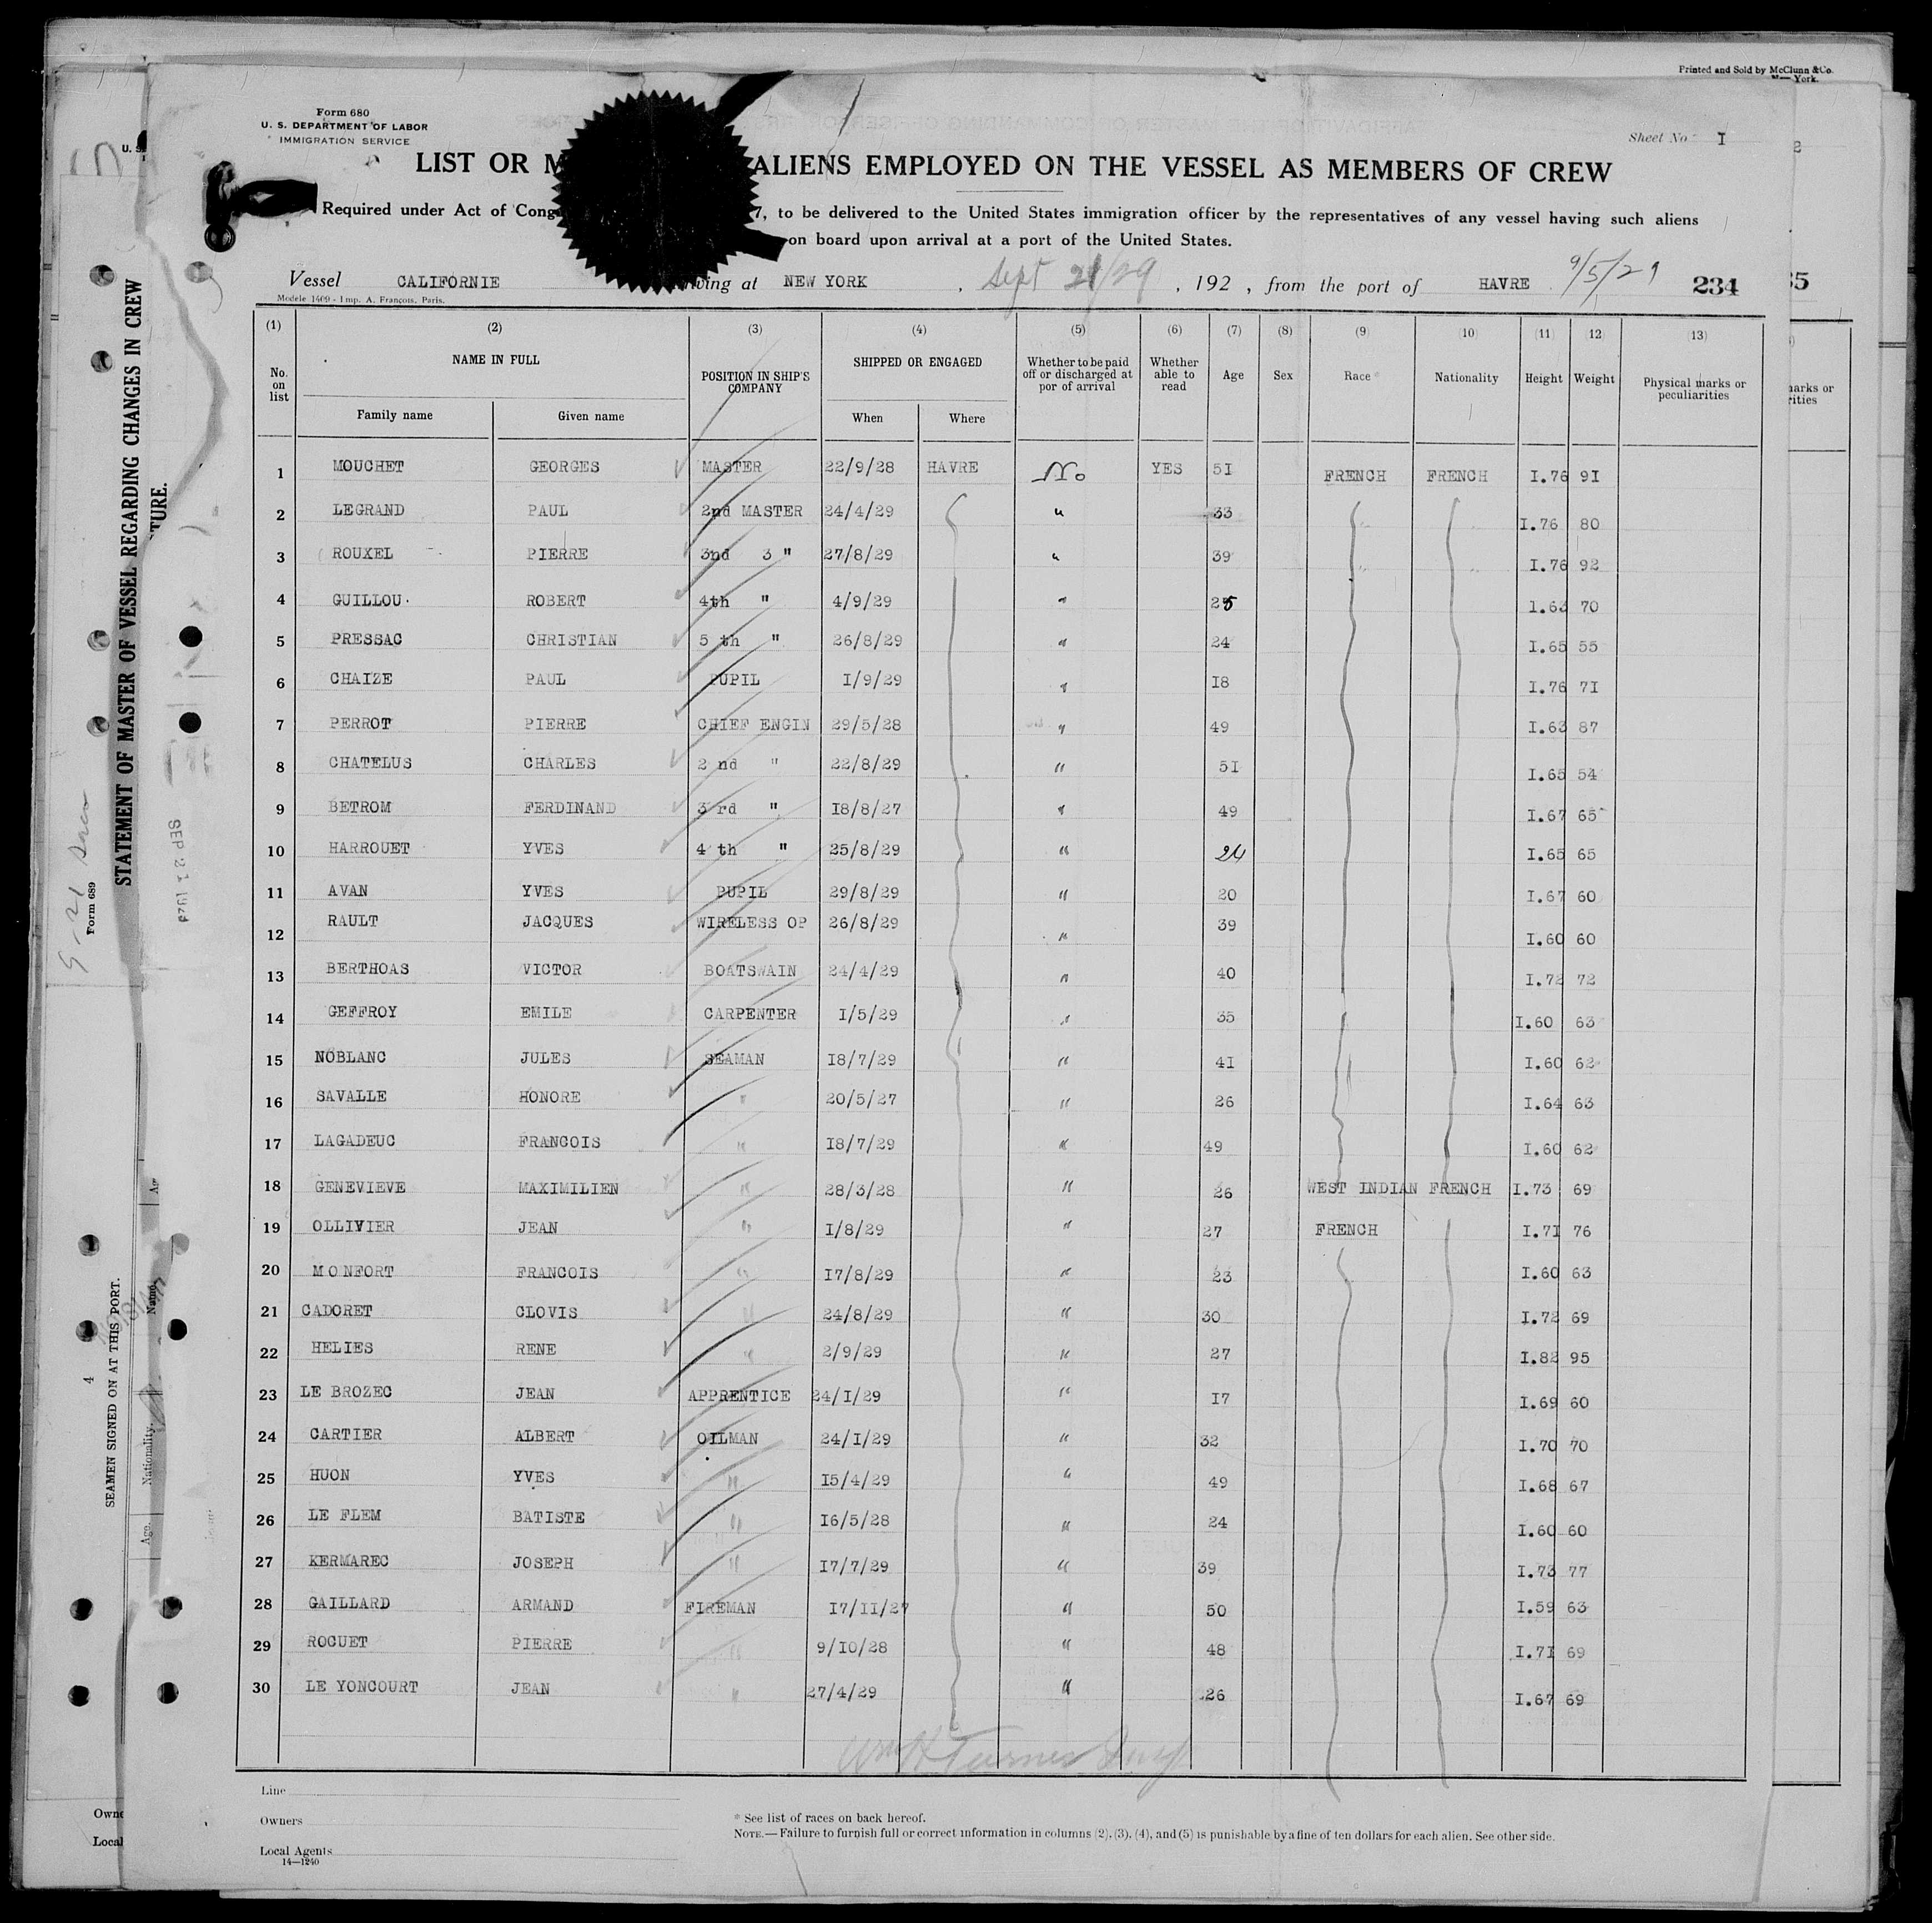 Printed and Sold by McClunn & Co.
York.
Form 680
U. S. DEPARTMENT OF LABOR
IMMIGRATION SERVICE
Sheet No I
2
LIST OR M ALIENS EMPLOYED ON THE VESSEL AS MEMBERS OF CREW
Required under Act of Cong 7, to be delivered to the United States immigration officer by the representatives of any vessel having such aliens
on board upon arrival at a port of the United States.
Vessel CALIFORNIE ving at NEW YORK , Sept 21/29 , 192 , from the port of HAVRE 9/5/29 234
35
Modele 1409 - Imp. A. François, Paris.
(1) (2) (3) (4) (5) (6) (7) (8) (9) (10) (11) 12 13)
No. on list NAME IN FULL POSITION IN SHIP'S COMPANY SHIPPED OR ENGAGED Whether to be paid off or discharged at por of arrival Whether able to read Age Sex Race Nationality Height Weight Physical marks or peculiarities
Family name Given name When Where
1 MOUCHET GEORGES MASTER 22/9/28 HAVRE No YES 5I FRENCH FRENCH I.76 9I
2 LEGRAND PAUL 2nd MASTER 24/4/29 " 33 I.76 80
3 ROUXEL PIERRE 3nd 3 " 27/8/29 " 39 I.76 92
4 GUILLOU ROBERT 4th " 4/9/29 " 25 1.63 70
5 PRESSAC CHRISTIAN 5 th " 26/8/29 " 24 I.65 55
6 CHAIZE PAUL PUPIL I/9/29 " I8 I.76 7I
7 PERROT PIERRE CHIEF ENGIN 29/5/28 " 49 I.63 87
8 CHATELUS CHARLES 2 nd " 22/8/29 " 5I I.65 54
9 BETROM FERDINAND 3 rd " I8/8/27 " 49 I.67 65
10 HARROUET YVES 4 th " 25/8/29 " 24 I.65 65
11 AVAN YVES PUPIL 29/8/29 " 20 I.67 60
12 RAULT JACQUES WIRELESS OP 26/8/29 " 39 I.60 60
13 BERTHOAS VICTOR BOATSWAIN 24/4/29 " 40 I.72 72
14 GEFFROY EMILE CARPENTER I/5/29 " 35 I.60 63
15 NOBLANC JULES SEAMAN I8/7/29 " 4I I.60 62
16 SAVALLE HONORE " 20/5/27 " 26 I.64 63
17 LAGADEUC FRANCOIS " I8/7/29 " 49 I.60 62
18 GENEVIEVE MAXIMILIEN " 28/3/28 " 26 WEST INDIAN FRENCH I.73 69
19 OLLIVIER JEAN " I/8/29 " 27 FRENCH I.7I 76
20 MONFORT FRANCOIS " I7/8/29 " 23 I.60 63
21 CADORET CLOVIS " 24/8/29 " 30 I.72 69
22 HELIES RENE " 2/9/29 " 27 I.82 95
23 LE BROZEC JEAN APPRENTICE 24/I/29 " I7 I.69 60
24 CARTIER ALBERT OILMAN 24/I/29 " 32 I.70 70
25 HUON YVES " I5/4/29 " 49 I.68 67
26 LE FLEM BATISTE " I6/5/28 " 24 I.60 60
27 KERMAREC JOSEPH " I7/7/29 " 39 I.73 77
28 GAILLARD ARMAND FIREMAN I7/II/27 " 50 I.59 63
29 ROGUET PIERRE " 9/I0/28 " 48 I.7I 69
30 LE YONCOURT JEAN " 27/4/29 " 26 I.67 69
Wm H Turner
Line
Owners
Local Agents
14—1240
* See list of races on back hereof.
NOTE.—Failure to furnish full or correct information in columns (2), (3), (4), and (5) is punishable by a fine of ten dollars for each alien. See other side.
STATEMENT OF MASTER OF VESSEL REGARDING CHANGES IN CREW
TURE.
SEP 21 1929
Form 689
SEAMEN SIGNED ON AT THIS PORT.
4
Name.
Nationality.
Age.
Owne
Local
arks or
rities